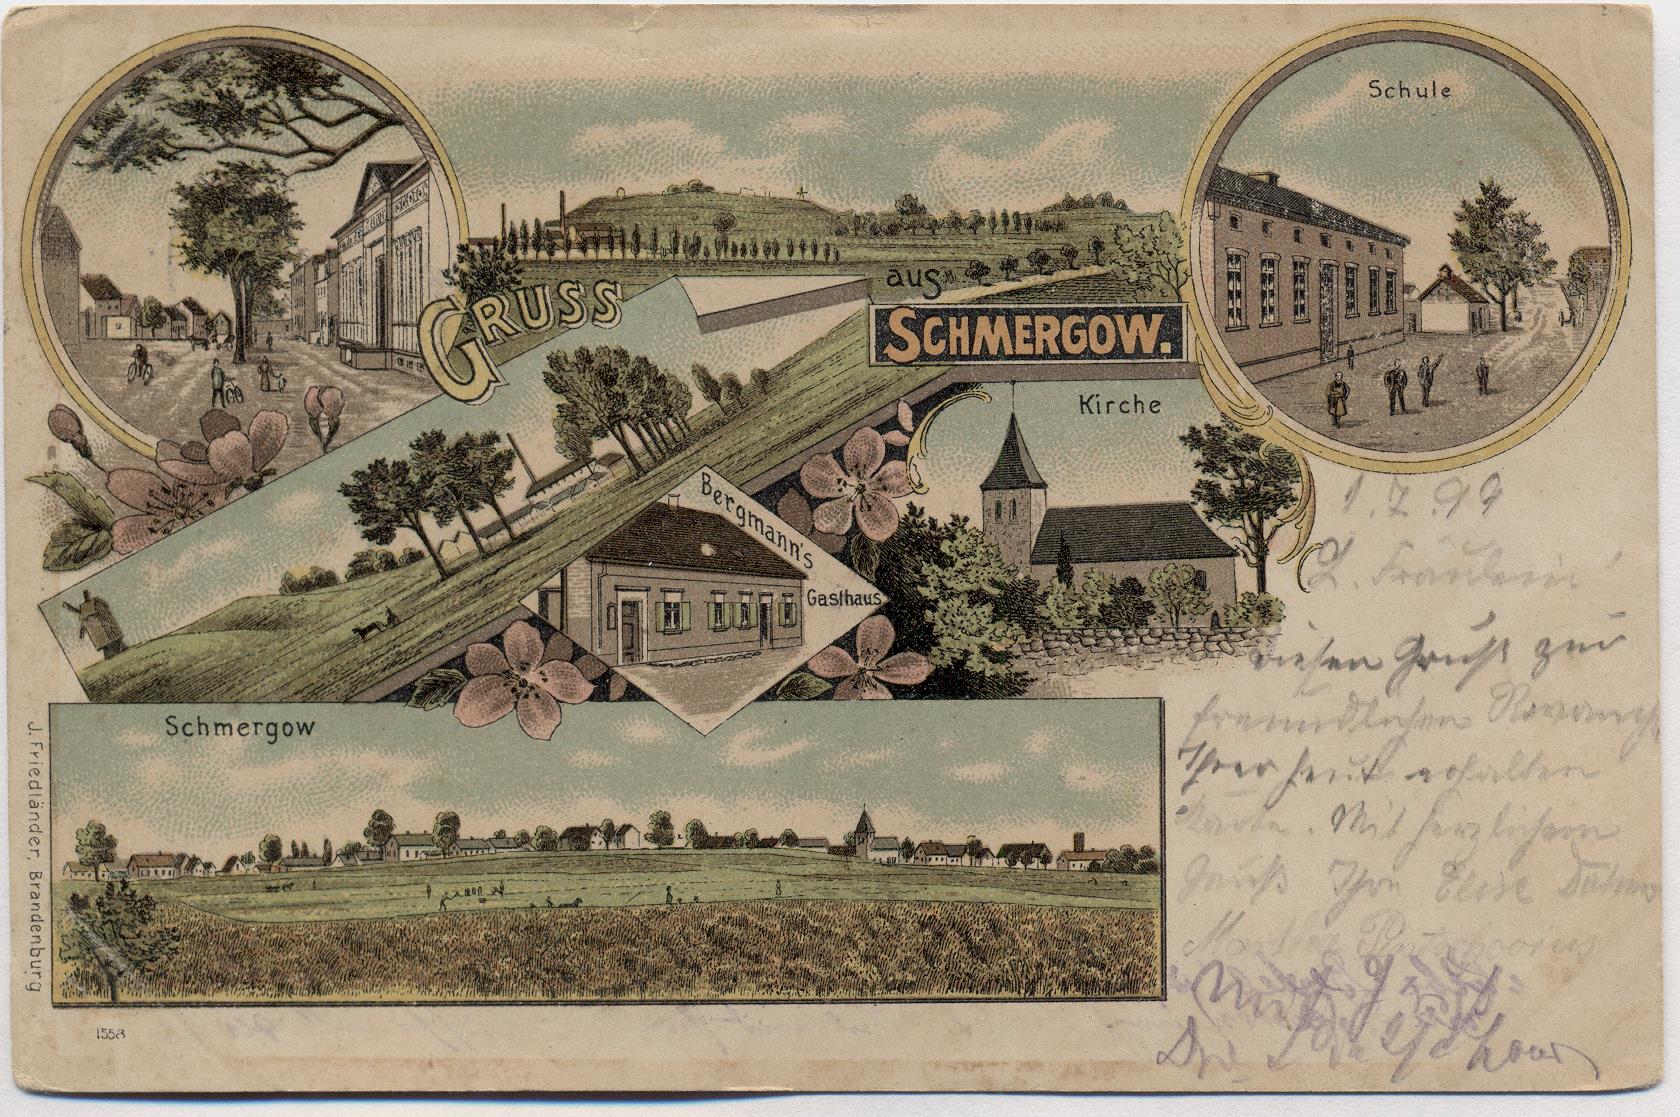 Schule
GRUSS
aus
SCHMERGOW.
Kirche
Bergmann's
Gasthaus
Schmergow
J. Friedländer, Brandenburg
1558
1.7.99
L. Fräulein!
diesen Gruß zur
freundlichen Revanch
Ihrer heut erhaltenen
Karte. Mit herzlichem
Gruß Ihre Elise